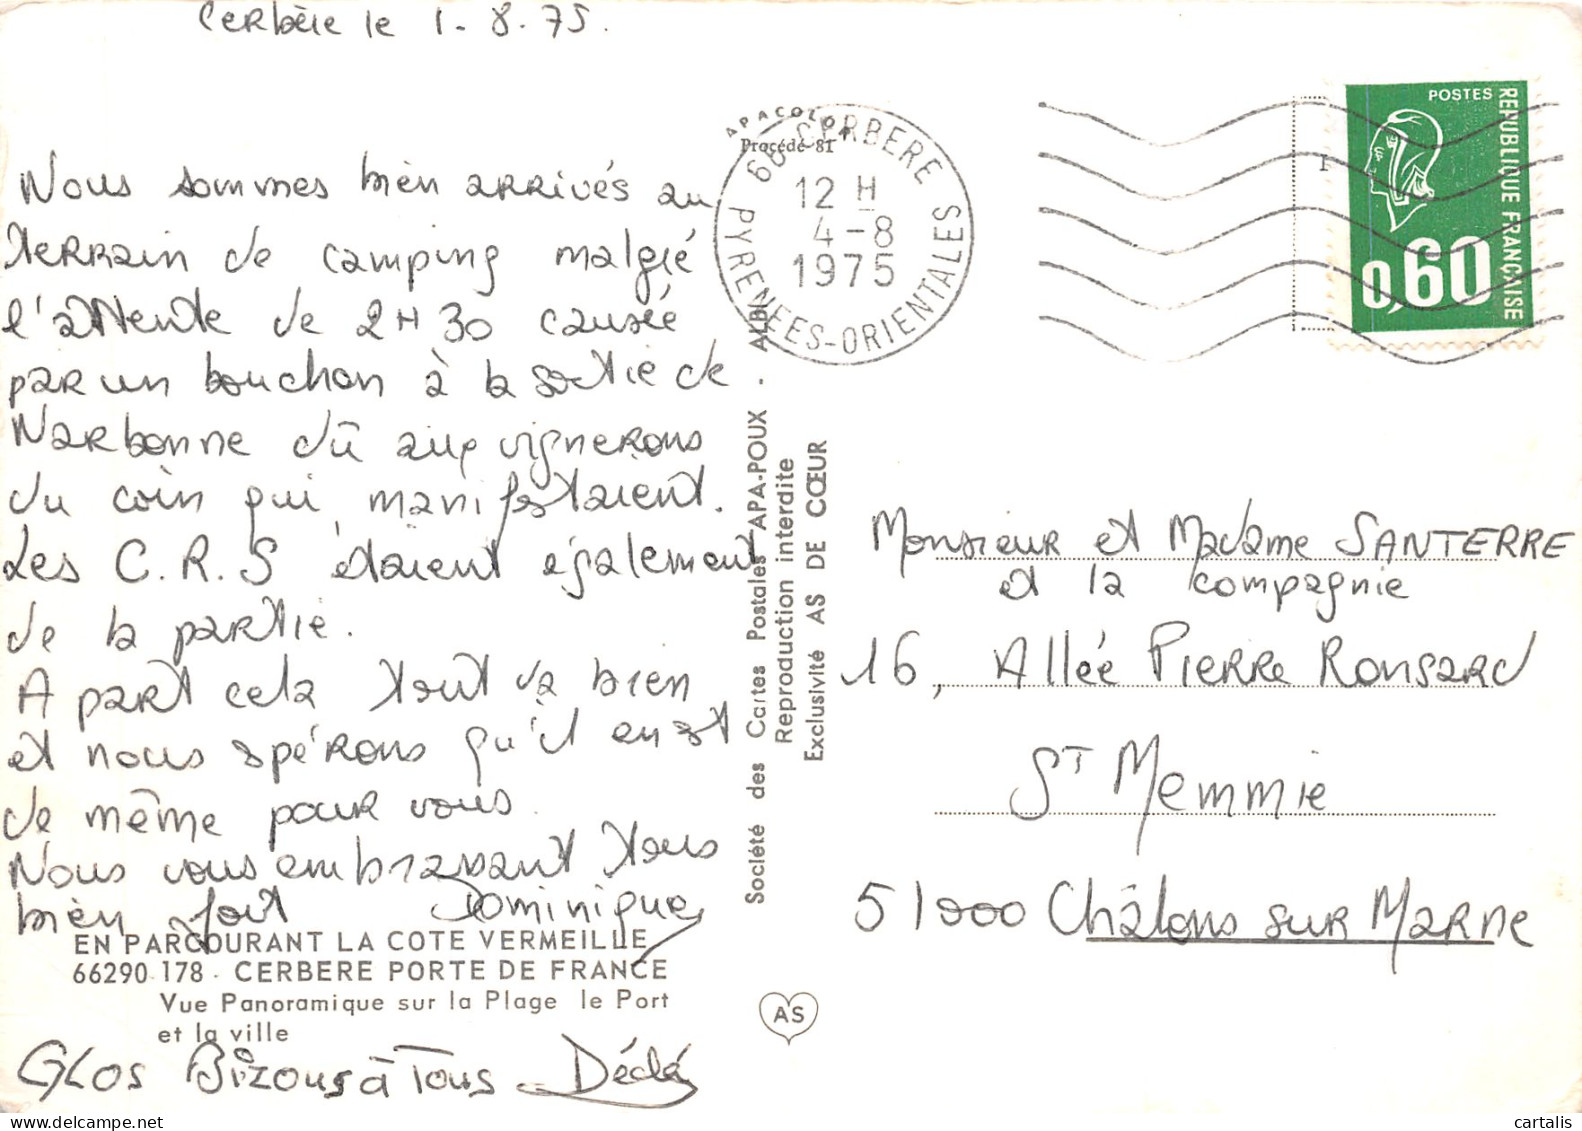 Cerbère le 1-8-75.
Nous sommes bien arrivés au
terrain de camping malgré
l'attente de 2H30 causée
par un bouchon à la sortie de
Narbonne dû aux vignerons
du coin qui manifestaient.
Les C.R.S étaient également
de la partie.
A part cela tout va bien
et nous spérons qu'il en est
de même pour vous.
Nous vous embrassant tous
bien fort Dominique
EN PARCOURANT LA COTE VERMEILLE
66290 178 - CERBERE PORTE DE FRANCE
Vue Panoramique sur la Plage le Port
et la ville
GLOS Bizous à Tous Dédé
APACOLOR
Procédé 8I
66 CERBERE
12 H
4-8
1975
PYRENEES-ORIENTALES
Société des Cartes Postales APA-POUX - ALBI
Reproduction interdite
Exclusivité AS DE CŒUR
AS
I
POSTES
REPUBLIQUE FRANÇAISE
0,60
Monsieur et Madame SANTERRE
et la compagnie
16, Allée Pierre Ronsard
ST Memmie
51000 Châlons sur Marne
cartalis